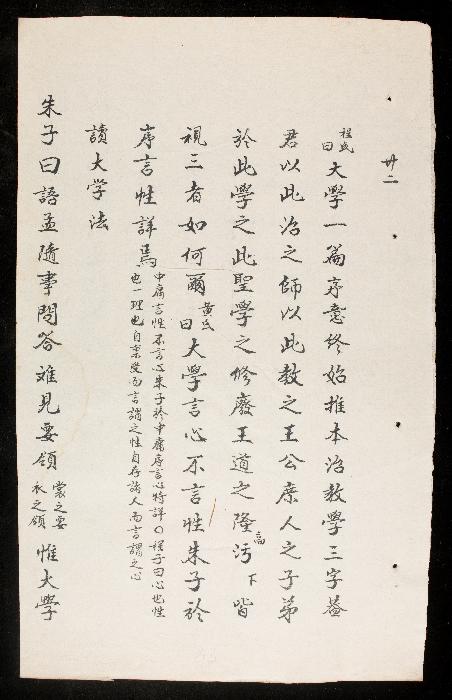 廿二
程氏曰大學一篇序意終始推本治教學三字蓋
君以此治之師以此教之王公庶人之子弟
於此學之此聖學之修廢王道之隆污高下皆
視三者如何爾黄氏曰大學言心不言性朱子於
序言性詳焉中庸言性不言心朱子於中庸序言心特詳〇程子曰心也性
也一理也自禀受而言謂之性自存諸人而言謂之心
讀大学法
朱子曰語孟隨事問答难見要領裳之要衣之領惟大學